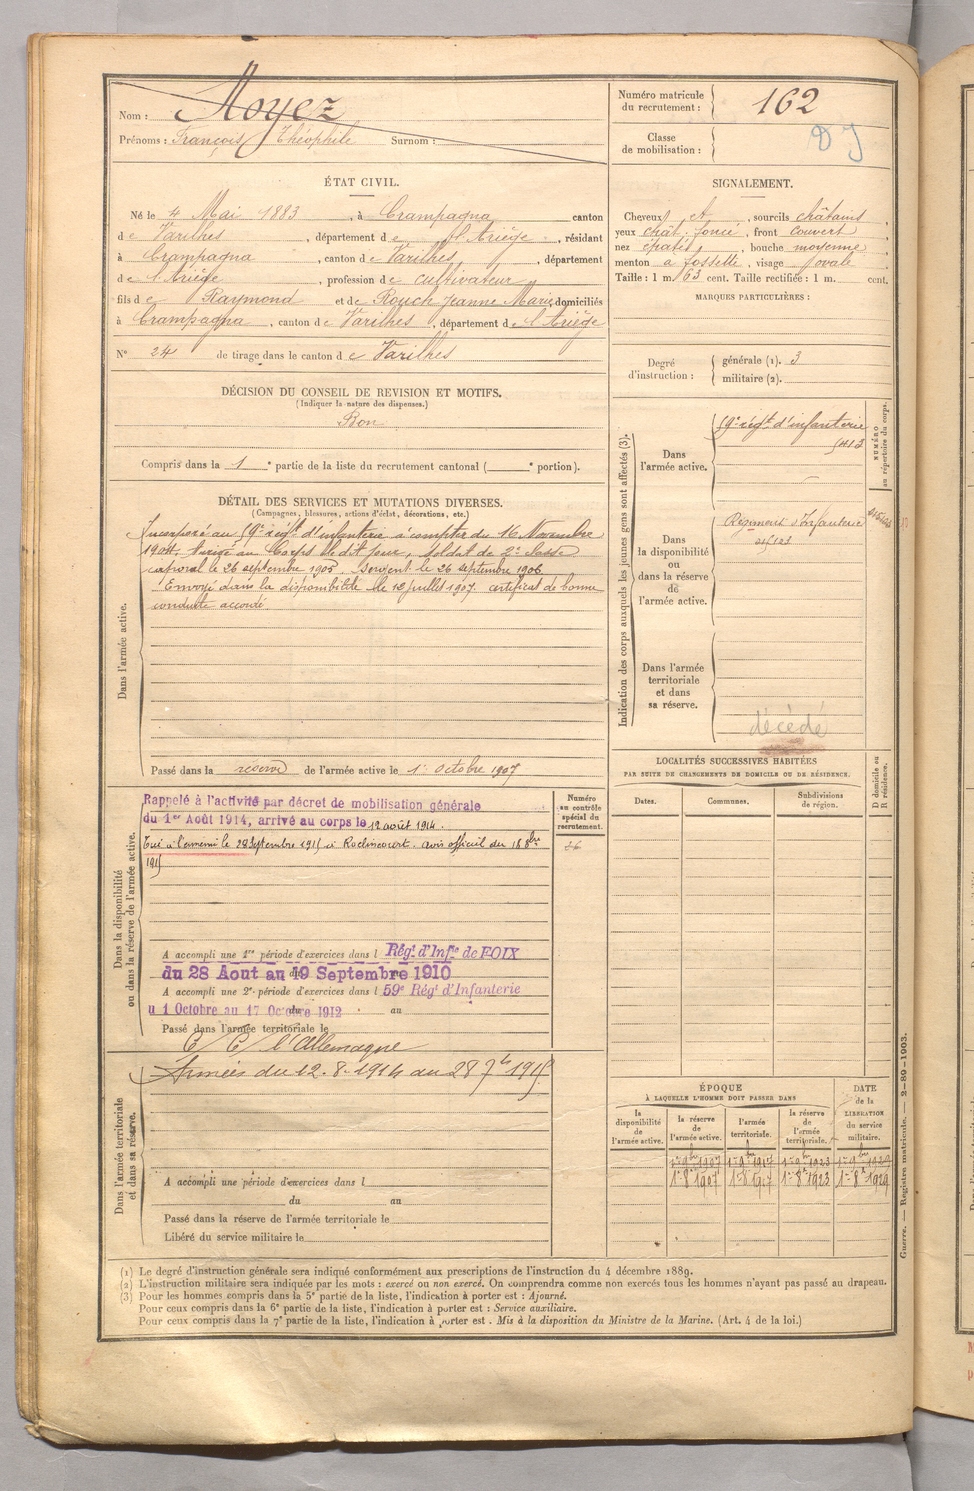 Nom : Hoyez
Prénoms : François Théophile Surnom :
ÉTAT CIVIL.
Né le 4 Mai 1883, à Crampagna canton
de Varilhes, département de l'Ariège, résidant
à Crampagna, canton de Varilhes, département
de l'Ariège, profession de cultivateur
fils de Raymond et de Rouch Jeanne Marie, domiciliés
à Crampagna, canton de Varilhes, département de l'Ariège
N° 24 de tirage dans le canton de Varilhes
DÉCISION DU CONSEIL DE REVISION ET MOTIFS.
(Indiquer la nature des dispenses.)
Bon
Compris dans la 1e partie de la liste du recrutement cantonal ( e portion).
DÉTAIL DES SERVICES ET MUTATIONS DIVERSES.
(Campagnes, blessures, actions d'éclat, décorations, etc.)
Dans l'armée active.
Incorporé au 59e régt d'infanterie à compter du 16 Novembre
1904. Arrivé au Corps le dit jour, soldat de 2e classe
caporal le 26 septembre 1905. Sergent le 26 septembre 1906
Envoyé dans la disponibilité le 12 juillet 1907. certificat de bonne
conduite accordé.
Passé dans la réserve de l'armée active le 1er octobre 1907
Dans la disponibilité
ou dans la réserve de l'armée active.
Rappelé à l'activité par décret de mobilisation générale
du 1er Août 1914, arrivé au corps le 12 août 1914.
Tué à l'ennemi le 28 Septembre 1915 à Roclincourt. avis officiel du 18 8bre
1915
A accompli une 1re période d'exercices dans l Régt d'Infie de FOIX
du 28 Aout au 19 Septembre 1910
A accompli une 2e période d'exercices dans l 59e Régt d'Infanterie
u 1 Octobre au 17 Octobre 1912 au
Passé dans l'armée territoriale le
C/ C/ l'Allemagne
Armées du 12. 8. 1914 au 28 7b 1915
Dans l'armée territoriale
et dans sa réserve.
A accompli une période d'exercices dans l
du au
Passé dans la réserve de l'armée territoriale le
Libéré du service militaire le
Numéro
au contrôle
spécial du
recrutement.
Numéro matricule
du recrutement : 162
Classe
de mobilisation :
SIGNALEMENT.
Cheveux et, sourcils châtains,
yeux chât. foncé, front couvert,
nez épaté, bouche moyenne
menton à fossette, visage ovale
Taille : 1 m. 63 cent. Taille rectifiée : 1 m. cent.
MARQUES PARTICULIÈRES :
Degré
d'instruction :
générale (1). 3
militaire (2).
Indication des corps auxquels les jeunes gens sont affectés (3).
NUMÉRO
au répertoire du corps.
Dans
l'armée active.
59e régt d'infanterie
Dans
la disponibilité
ou
dans la réserve
de
l'armée active.
Régiment d'Infanterie
Dans l'armée
territoriale
et dans
sa réserve.
décédé
LOCALITÉS SUCCESSIVES HABITÉES
PAR SUITE DE CHANGEMENTS DE DOMICILE OU DE RÉSIDENCE.
Dates.
Communes.
Subdivisions
de région.
D domicile ou
R résidence.
ÉPOQUE
À LAQUELLE L'HOMME DOIT PASSER DANS
la
disponibilité
de
l'armée active.
la réserve
de
l'armée active.
l'armée
territoriale.
la réserve
de
l'armée
territoriale.
DATE
de la
LIBÉRATION
du service
militaire.
1er 9bre 1907 1er 9bre 1917 1er 9bre 1923 1er 9bre 1929
1er 8e 1907 1er 8e 1917 1er 8e 1923 1er 8e 1929
Guerre. — Registre matricule. — 2-89-1903.
(1) Le degré d'instruction générale sera indiqué conformément aux prescriptions de l'instruction du 4 décembre 1889.
(2) L'instruction militaire sera indiquée par les mots : exercé ou non exercé. On comprendra comme non exercés tous les hommes n'ayant pas passé au drapeau.
(3) Pour les hommes compris dans la 5e partie de la liste, l'indication à porter est : Ajourné.
Pour ceux compris dans la 6e partie de la liste, l'indication à porter est : Service auxiliaire.
Pour ceux compris dans la 7e partie de la liste, l'indication à porter est . Mis à la disposition du Ministre de la Marine. (Art. 4 de la loi.)